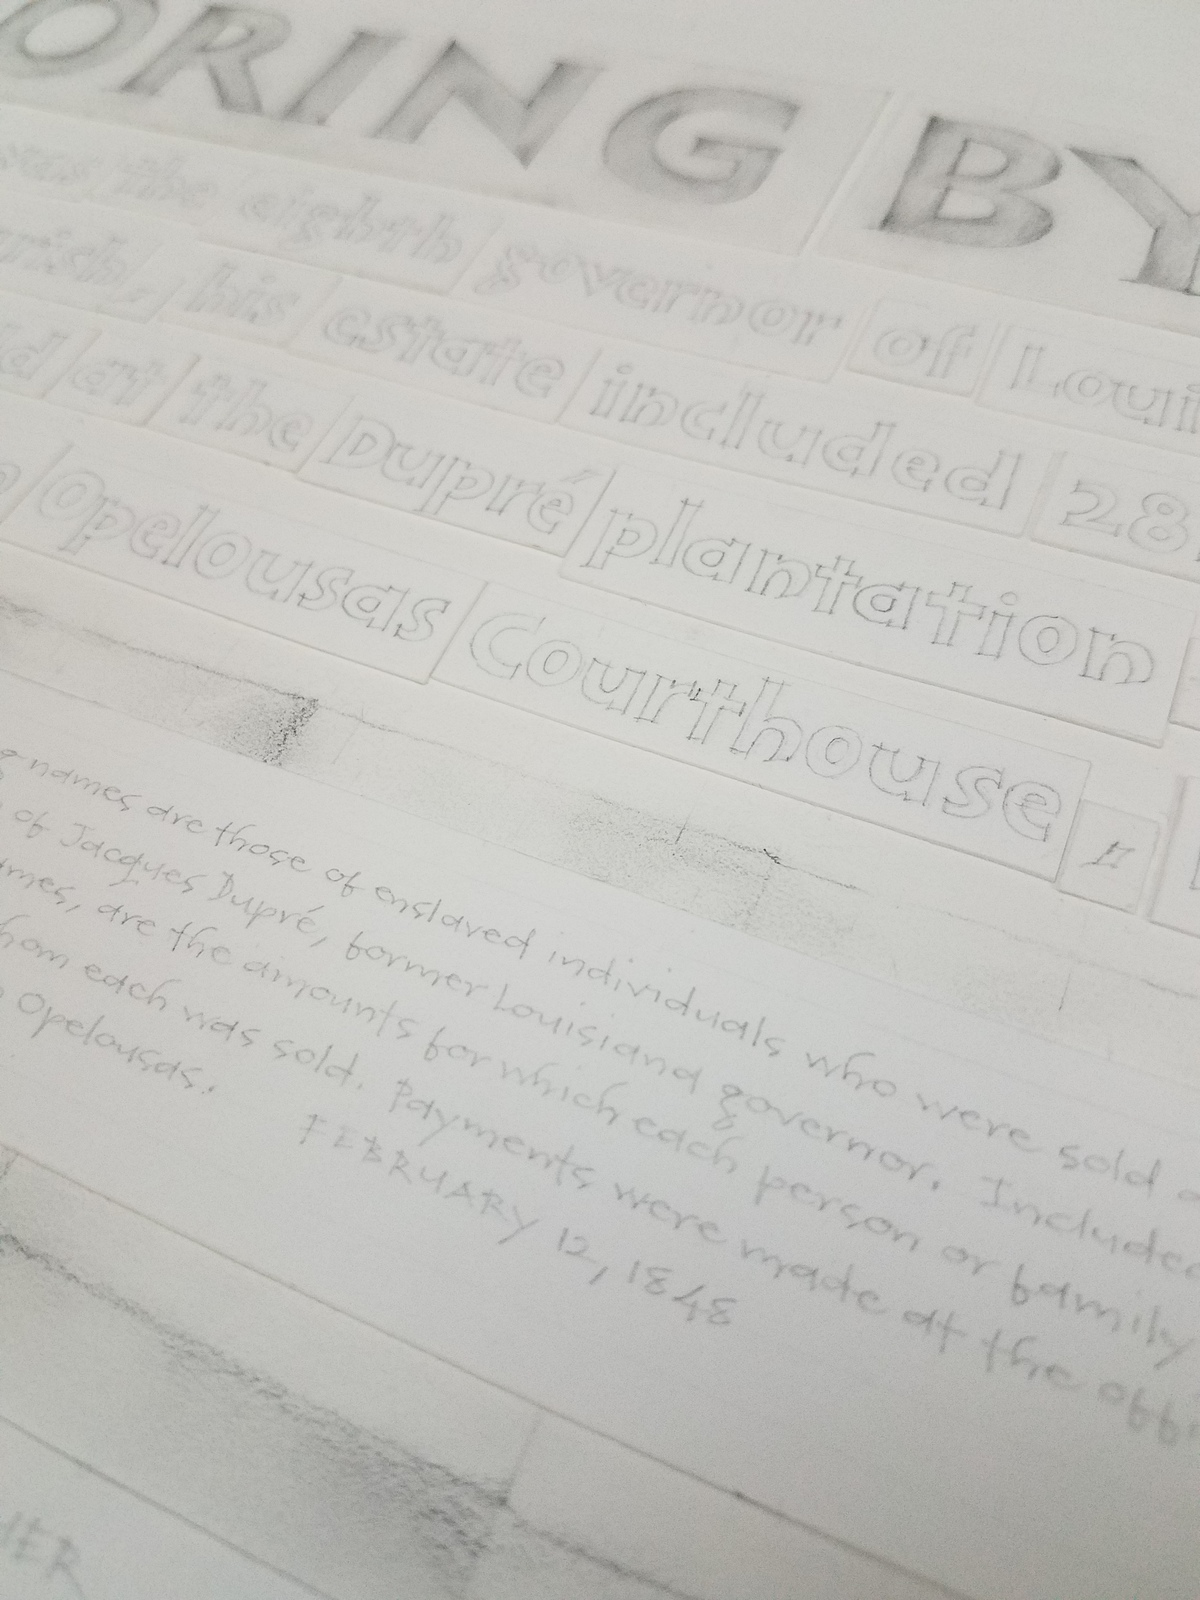 ORING BY
was the eighth governor of Loui
rish, his estate included 28
ld at the Dupré plantation
n Opelousas Courthouse,
g names are those of enslaved individuals who were sold a
of Jacques Dupré, former Louisiana governor. Included
ames, are the amounts for which each person or family
hom each was sold. Payments were made at the offi
Opelousas.
FEBRUARY 12, 1848
HER